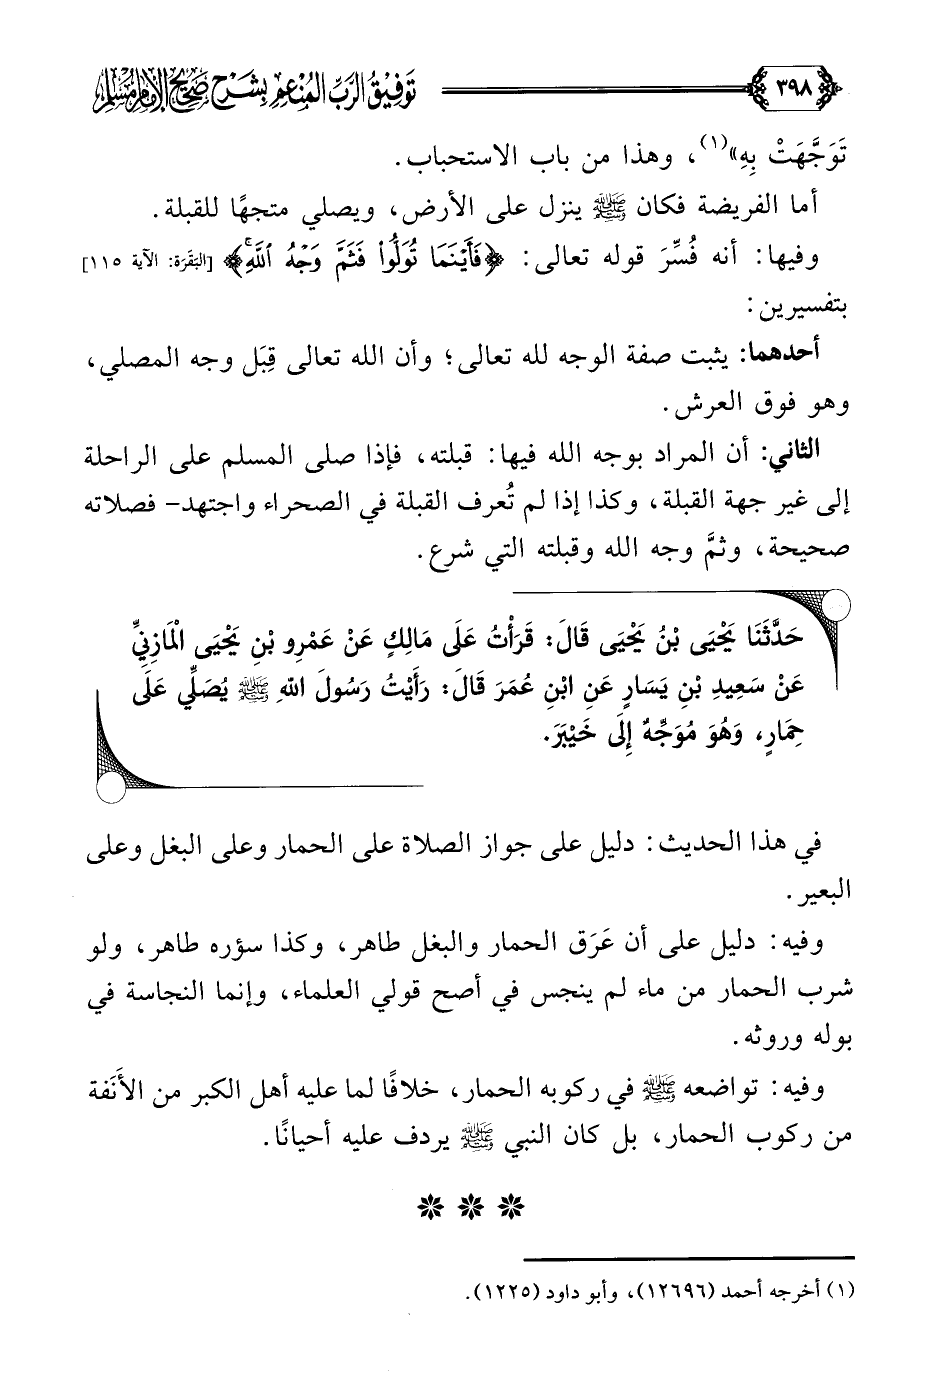 ٣٩٨
توفيق الرب المنعم بشرح صحيح الإمام مسلم
تَوَجَّهَتْ بِهِ»(١)، وهذا من باب الاستحباب.
أما الفريضة فكان ﷺ ينزل على الأرض، ويصلي متجهًا للقبلة.
وفيها: أنه فُسِّرَ قوله تعالى: ﴿فَأَيْنَمَا تُوَلُّوا۟ فَثَمَّ وَجْهُ ٱللَّهِۚ﴾ [البَقَرَة: الآية ١١٥]
بتفسيرين:
أحدهما: يثبت صفة الوجه لله تعالى؛ وأن الله تعالى قِبَل وجه المصلي،
وهو فوق العرش.
الثاني: أن المراد بوجه الله فيها: قبلته، فإذا صلى المسلم على الراحلة
إلى غير جهة القبلة، وكذا إذا لم تُعرف القبلة في الصحراء واجتهد- فصلاته
صحيحة، وثمَّ وجه الله وقبلته التي شرع.
حَدَّثَنَا يَحْيَى بْنُ يَحْيَى قَالَ: قَرَأْتُ عَلَى مَالِكٍ عَنْ عَمْرِو بْنِ يَحْيَى الْمَازِنِيِّ
عَنْ سَعِيدِ بْنِ يَسَارٍ عَنِ ابْنِ عُمَرَ قَالَ: رَأَيْتُ رَسُولَ اللهِ ﷺ يُصَلِّي عَلَى
حِمَارٍ، وَهُوَ مُوَجِّهٌ إِلَى خَيْبَرَ.
في هذا الحديث: دليل على جواز الصلاة على الحمار وعلى البغل وعلى
البعير.
وفيه: دليل على أن عَرَق الحمار والبغل طاهر، وكذا سؤره طاهر، ولو
شرب الحمار من ماء لم ينجس في أصح قولي العلماء، وإنما النجاسة في
بوله وروثه.
وفيه: تواضعه ﷺ في ركوبه الحمار، خلافًا لما عليه أهل الكبر من الأَنَفة
من ركوب الحمار، بل كان النبي ﷺ يردف عليه أحيانًا.
(١) أخرجه أحمد (١٢٦٩٦)، وأبو داود (١٢٢٥).